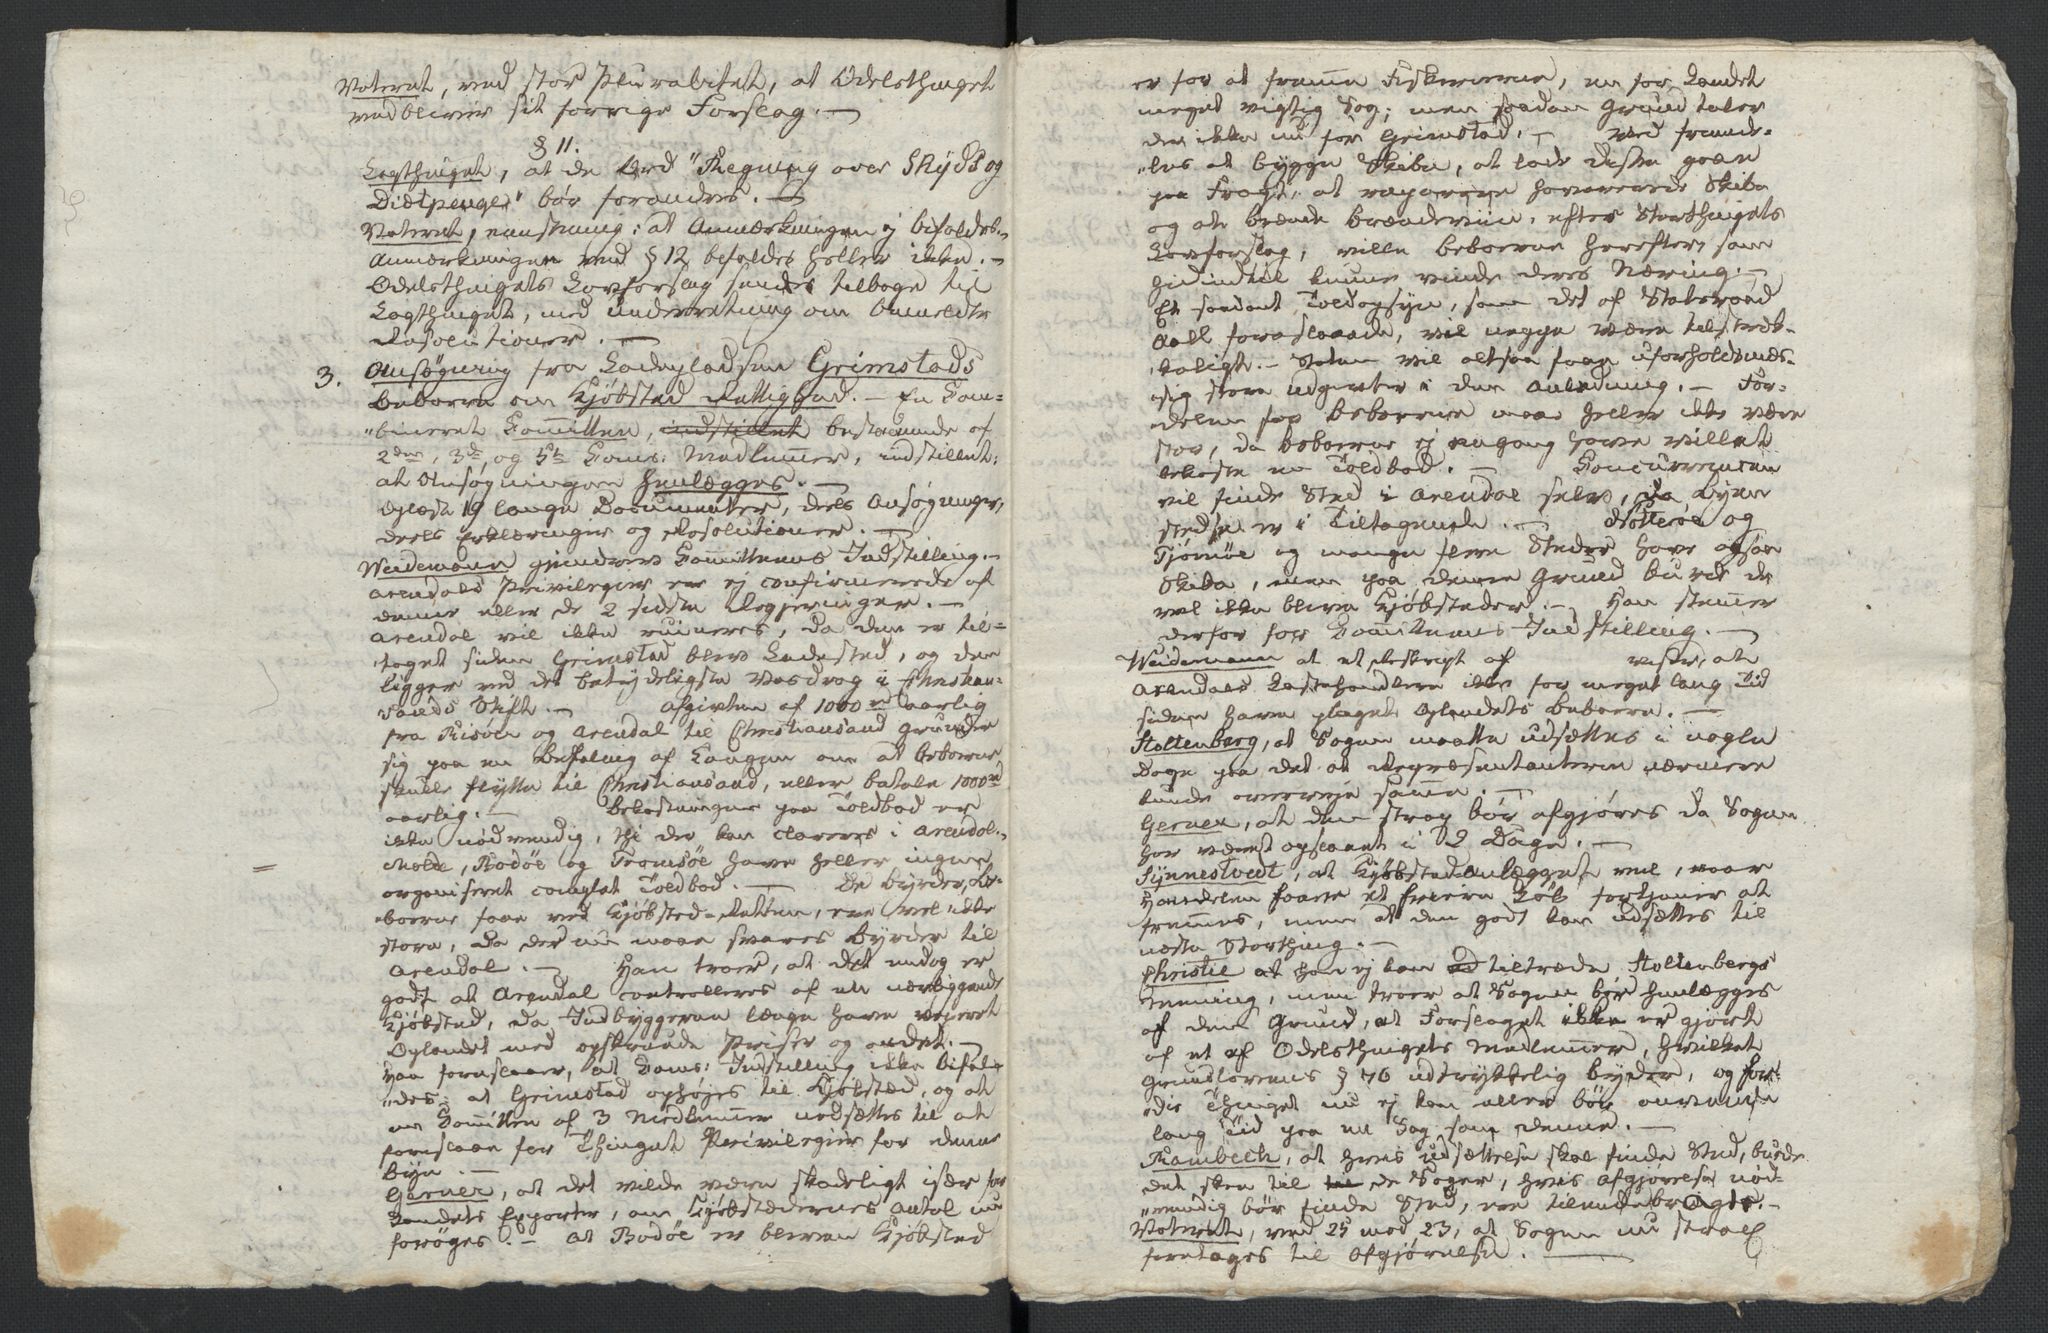 Voteret, med stor Pluralitet, at Odelsthinget
vedbliver sit forrige Forslag. —
§ 11.
Lagthinget, at de Ord "Regning over Skyds og
Diætpenge" bør forandres. —
Voteret, eenstemmig: at Anmærkningen ej bifaldes. —
Anmærkningen ved § 12 bifaldes heller ikke. —
Odelsthingets Lovforslag sendes tilbage til
Lagthinget, med Underretning om anmeldte
Resolutioner. —
3. Ansøgning fra Ladepladsen Grimstads
Beboere om Kjøbstad Rettighed. — En Com=
"bineret Committee, indstillet bestaaende af
2den, 3de og 5te Coms: Medlemmer, indstillet:
at Ansøgningen henlægges. —
Oplæst 19 lange Documenter, deels Ansøgninger,
deels Erklæringer og Resolutioner. —
Weidemann grundede Committeens Indstilling. —
Arendals Privilegier ere ej confirmerede af
denne eller de 2 sidste Regjeringer. —
Arendal vil ikke ruineres, da den er til=
"taget siden Grimstad blev Ladested, og den
ligger ved det betydeligste Vasdrag i Christian=
sands Stift. — Afgivten af 1000 rd aarlig
fra Risøen og Arendal til Christiansand grunder
sig paa en Befaling af Kongen om at Beboerne
skulle flytte til Christiansand, eller betale 1000 rd
aarlig. — Bekostninger paa Toldbod er
ikke nødvendig, thi der kan clareres i Arendal. —
Molde, Bodøe og Tromsøe have heller ingen
organiseret complet Toldbod. — De Byrder, Be=
"boerne faae ved Kjøbsted-Retten, ere vel ikke
store, da der nu maae svares Byrder til
Arendal. — Han troer, at det endog er
godt at Arendal controlleres af en nærliggende
Kjøbsted, da Indbyggerne længe have
Oplandet med opskruede Priser og andet. —
Han foreslaaer, at Coms: Indstilling ikke bifal=
"des: at Grimstad ophøjes til Kjøbstæd, og at
en Committee af 3 Medlemmer nedsættes til at
foreslaae for Thinget Privilegier for denne
Bye. —
Gerner, at det vilde være skadeligt især for
Landets Exporter, om Kjøbstædernes Antal nu
forøges. — At Bodøe er bleven Kjøbsted
er for at fremme Fiskerierne, en for Landet
meget vigtig Sag; men saadan Grund taler
der ikke nu for Grimstad. — Ved fremde=
"les at bygge Skibe, at lade disse gaae
paa Fragt, at reparere havarerede Skibe
og at brænde Brændeviin, efter Storthingets
Lovforslag, ville Beboerne herefter, som
hidindtil kunne vinde deres Næring. —
Et saadant Toldopsyn, som det af Statsraad
Aall foreslaaede, vil neppe være tilstræk=
"keligt. — Staten vil altsaa faae uforholdsmæs=
"sig store Udgivter i den Anledning. — For=
"delen for Beboerne maae heller ikke være
stor, da Beboerne ej engang have villet
bekoste en Toldbod. — Concurrencen
vil finde Sted i Arendal selv, da Byen
stedse er i Tiltagende. — Nøtterøe og
Tjømøe og mange flere Steder have ogsaa
Skibe, men paa denne Grund burde de
vel ikke blive Kjøbsteder. — Han stemmer
derfor for Committeens Indstilling. —
Weidemann at et Reskript af viser, at
Arendals Lastehandlere ikke for meget lang Tid
siden have plaget Oplandets Beboere. —
Stoltenberg, at Sagen maatte udsættes i nogle
Dage paa det at Repræsentanterne nærmere
kunde overveie samme. —
Gerner, at den strax bør afgjøres da Sagen
har været opslaaet i 2 Dage. —
Synnestvedt, at Kjøbstadanlægget vel, naar
Handelen faaer et friere Løb fortjener at
fremmes, men at den godt kan udsættes til
næste Storthing. —
Christie at han ej kan tiltræde Stoltenbergs
Mening, men troer at Sagen bør henlægges
af den Grund, at Forslaget ikke er gjort
af et af Odelsthingets Medlemmer, hvilket
Grundlovens § 76 udtrykkelig byder, og for=
"die Thinget nu ej kan eller bør anvende
lang Tid paa en Sag som denne. —
Rambech, at hvis Udsættelse skal finde Sted, burde
det skee til de Sager, hvis Afgjørelse nød=
"vendig bør finde Sted, ere tilendebragte. —
Voteret, med 25 mod 23, at Sagen nu strax
foretages til Afgjørelse. —